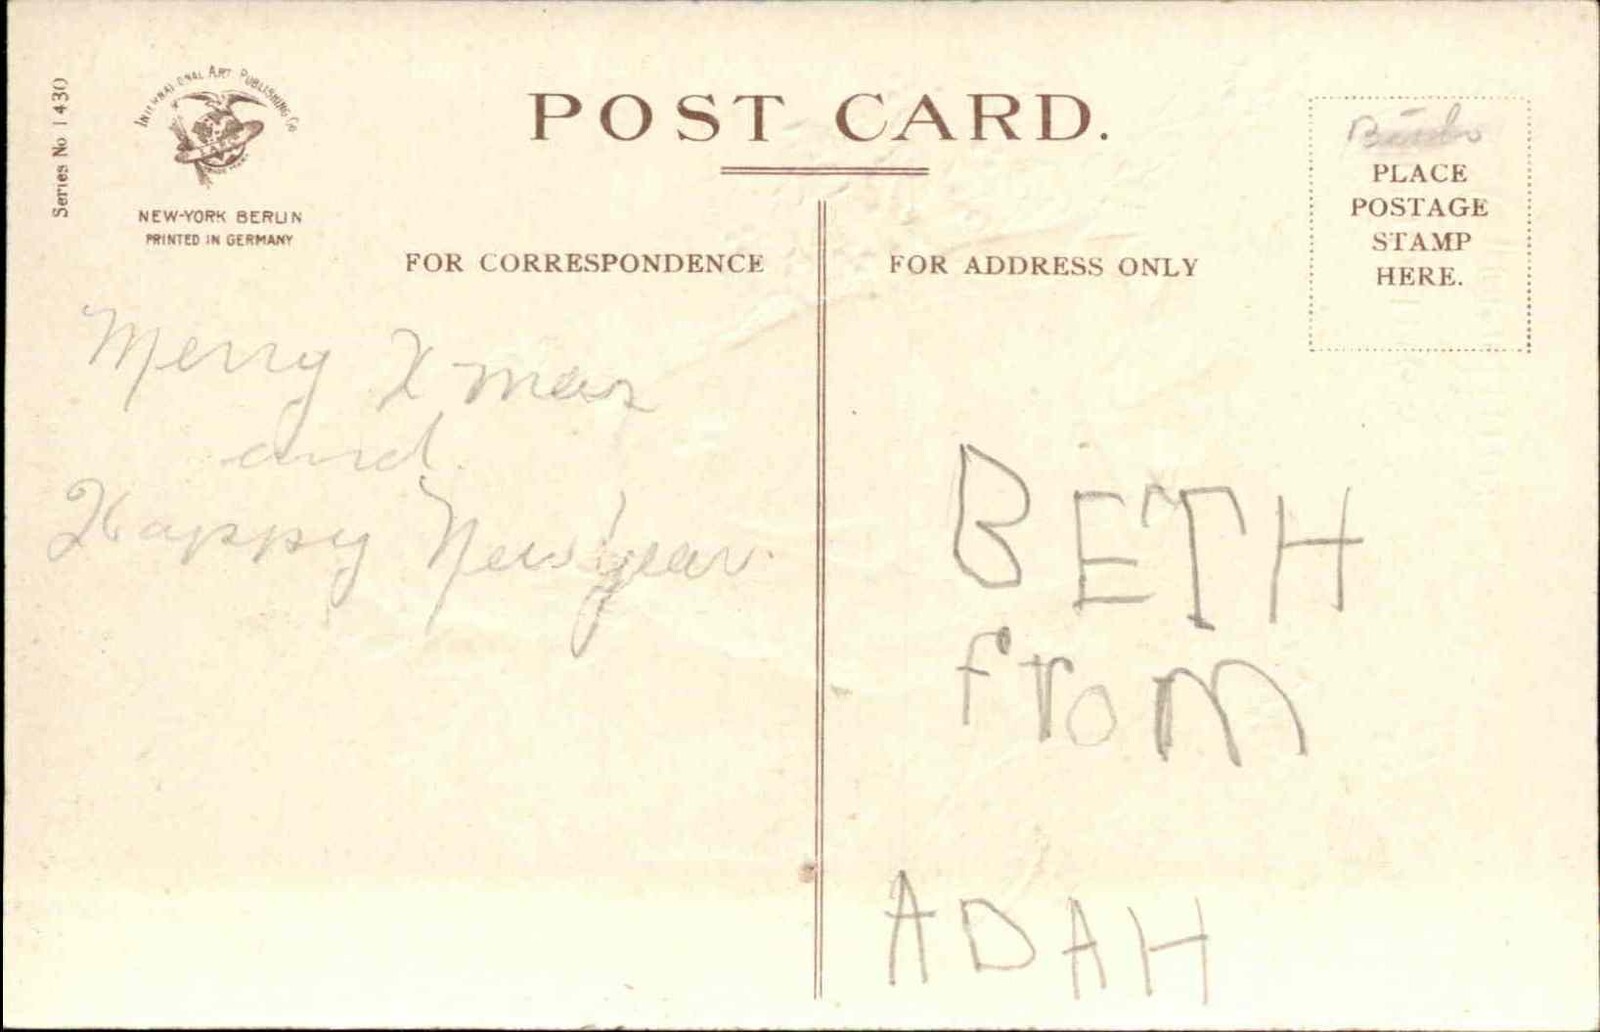 Series No 1430
INTERNATIONAL ART PUBLISHING Co
NEW-YORK BERLIN
PRINTED IN GERMANY
POST CARD.
FOR CORRESPONDENCE
FOR ADDRESS ONLY
PLACE
POSTAGE
STAMP
HERE.
Merry Xmas
and
Happy New year.
BETH
from
ADAH